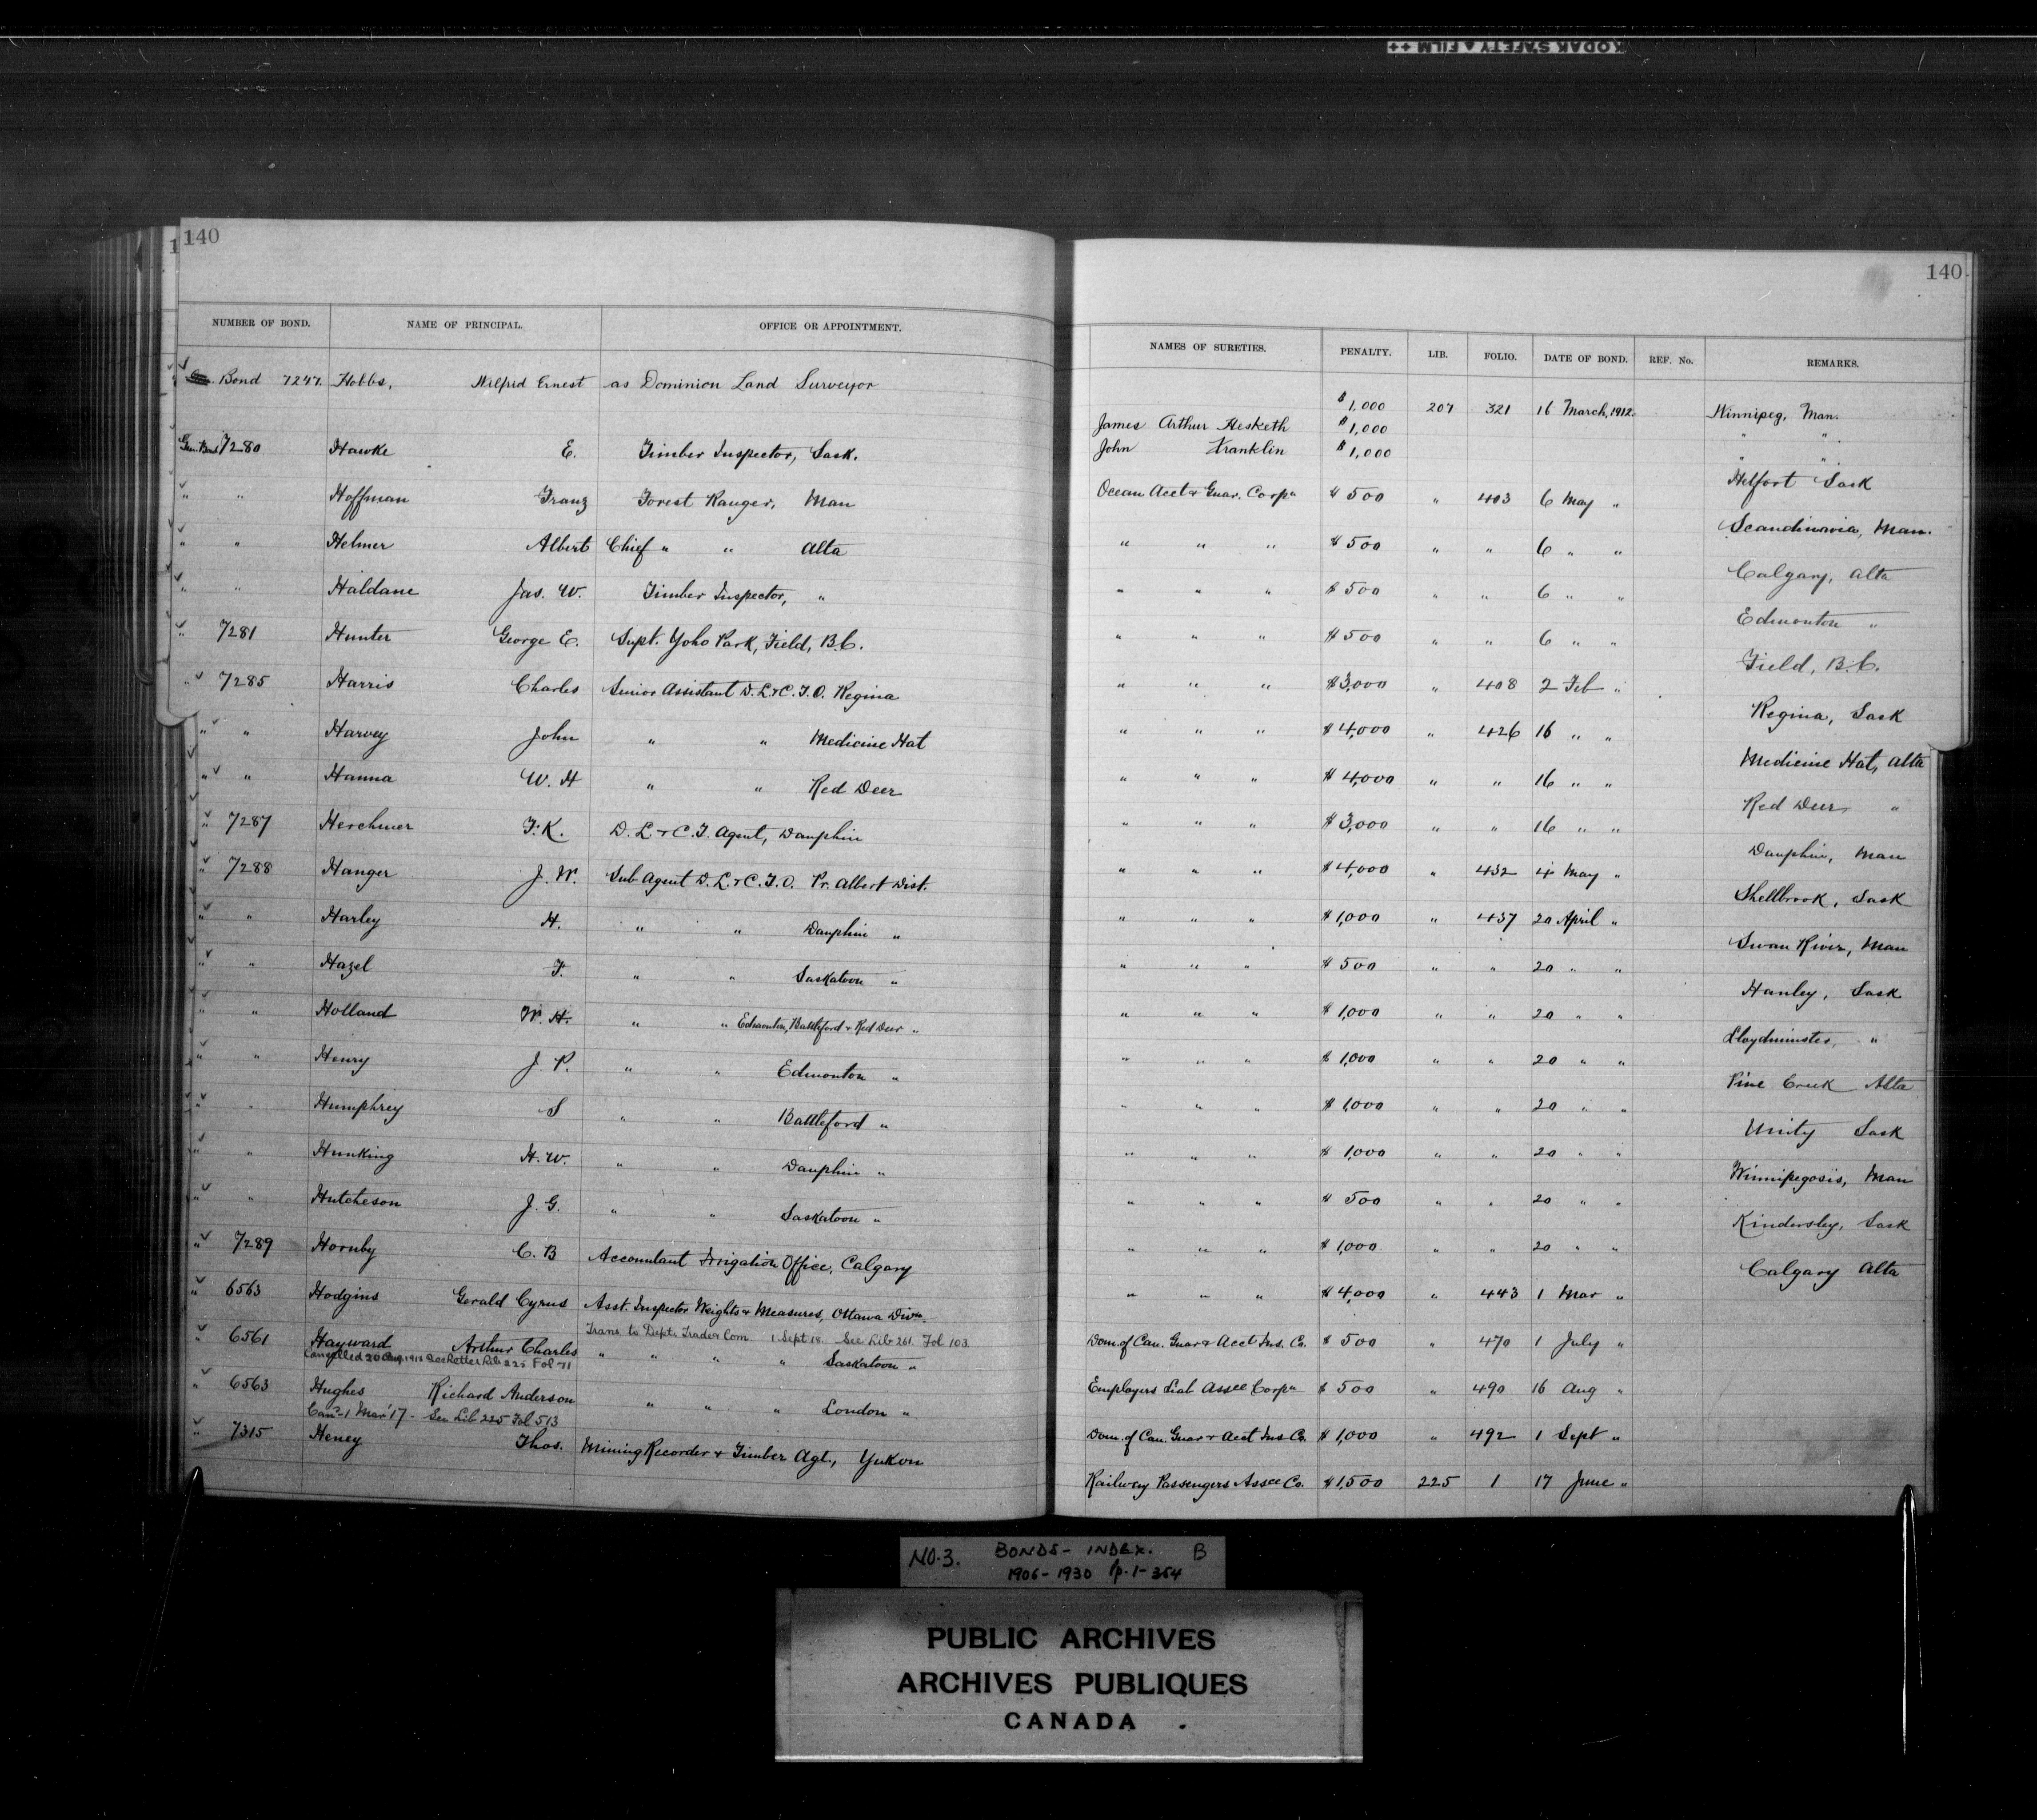 KODAK SAFETY ▲ FILM ++
140
NUMBER OF BOND. NAME OF PRINCIPAL. OFFICE OR APPOINTMENT.
Bond 7247. Hobbs, Wilfrid Ernest as Dominion Land Surveyor
Gen. Bond 7280 Hawke E. Timber Inspector, Sask.
" " Hoffman Franz Forest Ranger, Man
" " Helmer Albert Chief " " Alta
" " Haldane Jas. W. Timber Inspector, "
" 7281 Hunter George E. Supt. Yoho Park, Field, B.C.
" 7285 Harris Charles Senior Assistant D. L. & C. T. O. Regina
" " Harvey John " " Medicine Hat
" " Hanna W. H " " Red Deer
" 7287 Herchmer F. K. D. L. & C. T. Agent, Dauphin
" 7288 Hanger J. W. Sub Agent D. L. & C. T. O. Pr. Albert Dist.
" " Harley H. " " Dauphin "
" " Hazel F. " " Saskatoon "
" " Holland W. H. " " Edmonton, Battleford & Red Deer "
" " Henry J. P. " " Edmonton "
" " Humphrey S " " Battleford "
" " Hunking H. W. " " Dauphin "
" " Hutcheson J. G. " " Saskatoon "
" 7289 Hornby C. B Accountant Irrigation Office, Calgary
" 6563 Hodgins Gerald Cyrus Asst. Inspector Weights & Measures, Ottawa Divn.
Trans. to Dept. Trade & Com. 1 Sept 18. See Lib 261. Fol 103
" 6561 Hayward Arthur Charles " " " " Saskatoon "
Cancelled 20 Aug. 1913 See Letter Lib 225 Fol 71
" 6563 Hughes Richard Anderson " " " London "
Canc. 1 Mar '17 - See Lib 225 Fol 513
" 7315 Heney Thos. Mining Recorder & Timber Agt., Yukon
140
NAMES OF SURETIES. PENALTY. LIB. FOLIO. DATE OF BOND. REF. No. REMARKS.
$1,000 207 321 16 March, 1912. Winnipeg, Man.
James Arthur Hesketh $1,000 " "
John Franklin $1,000 " "
Ocean Acct & Guar. Corpn $500 " 403 6 May " Melfort Sask
" " " $500 " " 6 " " Scandinavia, Man.
" " " $500 " " 6 " " Calgary, Alta
" " " $500 " " 6 " " Edmonton "
" " " $3,000 " 408 2 Feb " Field, B.C.
" " " $4,000 " 426 16 " " Regina, Sask
" " " $4,000 " " 16 " " Medicine Hat, Alta
" " " $3,000 " " 16 " " Red Deer "
" " " $4,000 " 432 4 May " Dauphin, Man
" " " $1,000 " 437 20 April " Shellbrook, Sask
" " " $500 " " 20 " " Swan River, Man
" " " $1,000 " " 20 " " Hanley, Sask
" " " $1,000 " " 20 " " Lloydminster, "
" " " $1,000 " " 20 " " Pine Creek Alta
" " " $1,000 " " 20 " " Unity Sask
" " " $500 " " 20 " " Winnipegosis, Man
" " " $1,000 " " 20 " " Kindersley, Sask
" " " $4,000 " 443 1 Mar " Calgary Alta
Dom. of Can. Guar & Acct Ins. Co. $500 " 470 1 July "
Employers Liab Assce Corpn $500 " 490 16 Aug "
Dom. of Can. Guar & Acct Ins Co. $1,000 " 492 1 Sept "
Railway Passengers Assce Co. $1,500 225 1 17 June "
NO. 3. BONDS - INDEX. B
1906 - 1930 p. 1 - 364
PUBLIC ARCHIVES
ARCHIVES PUBLIQUES
CANADA